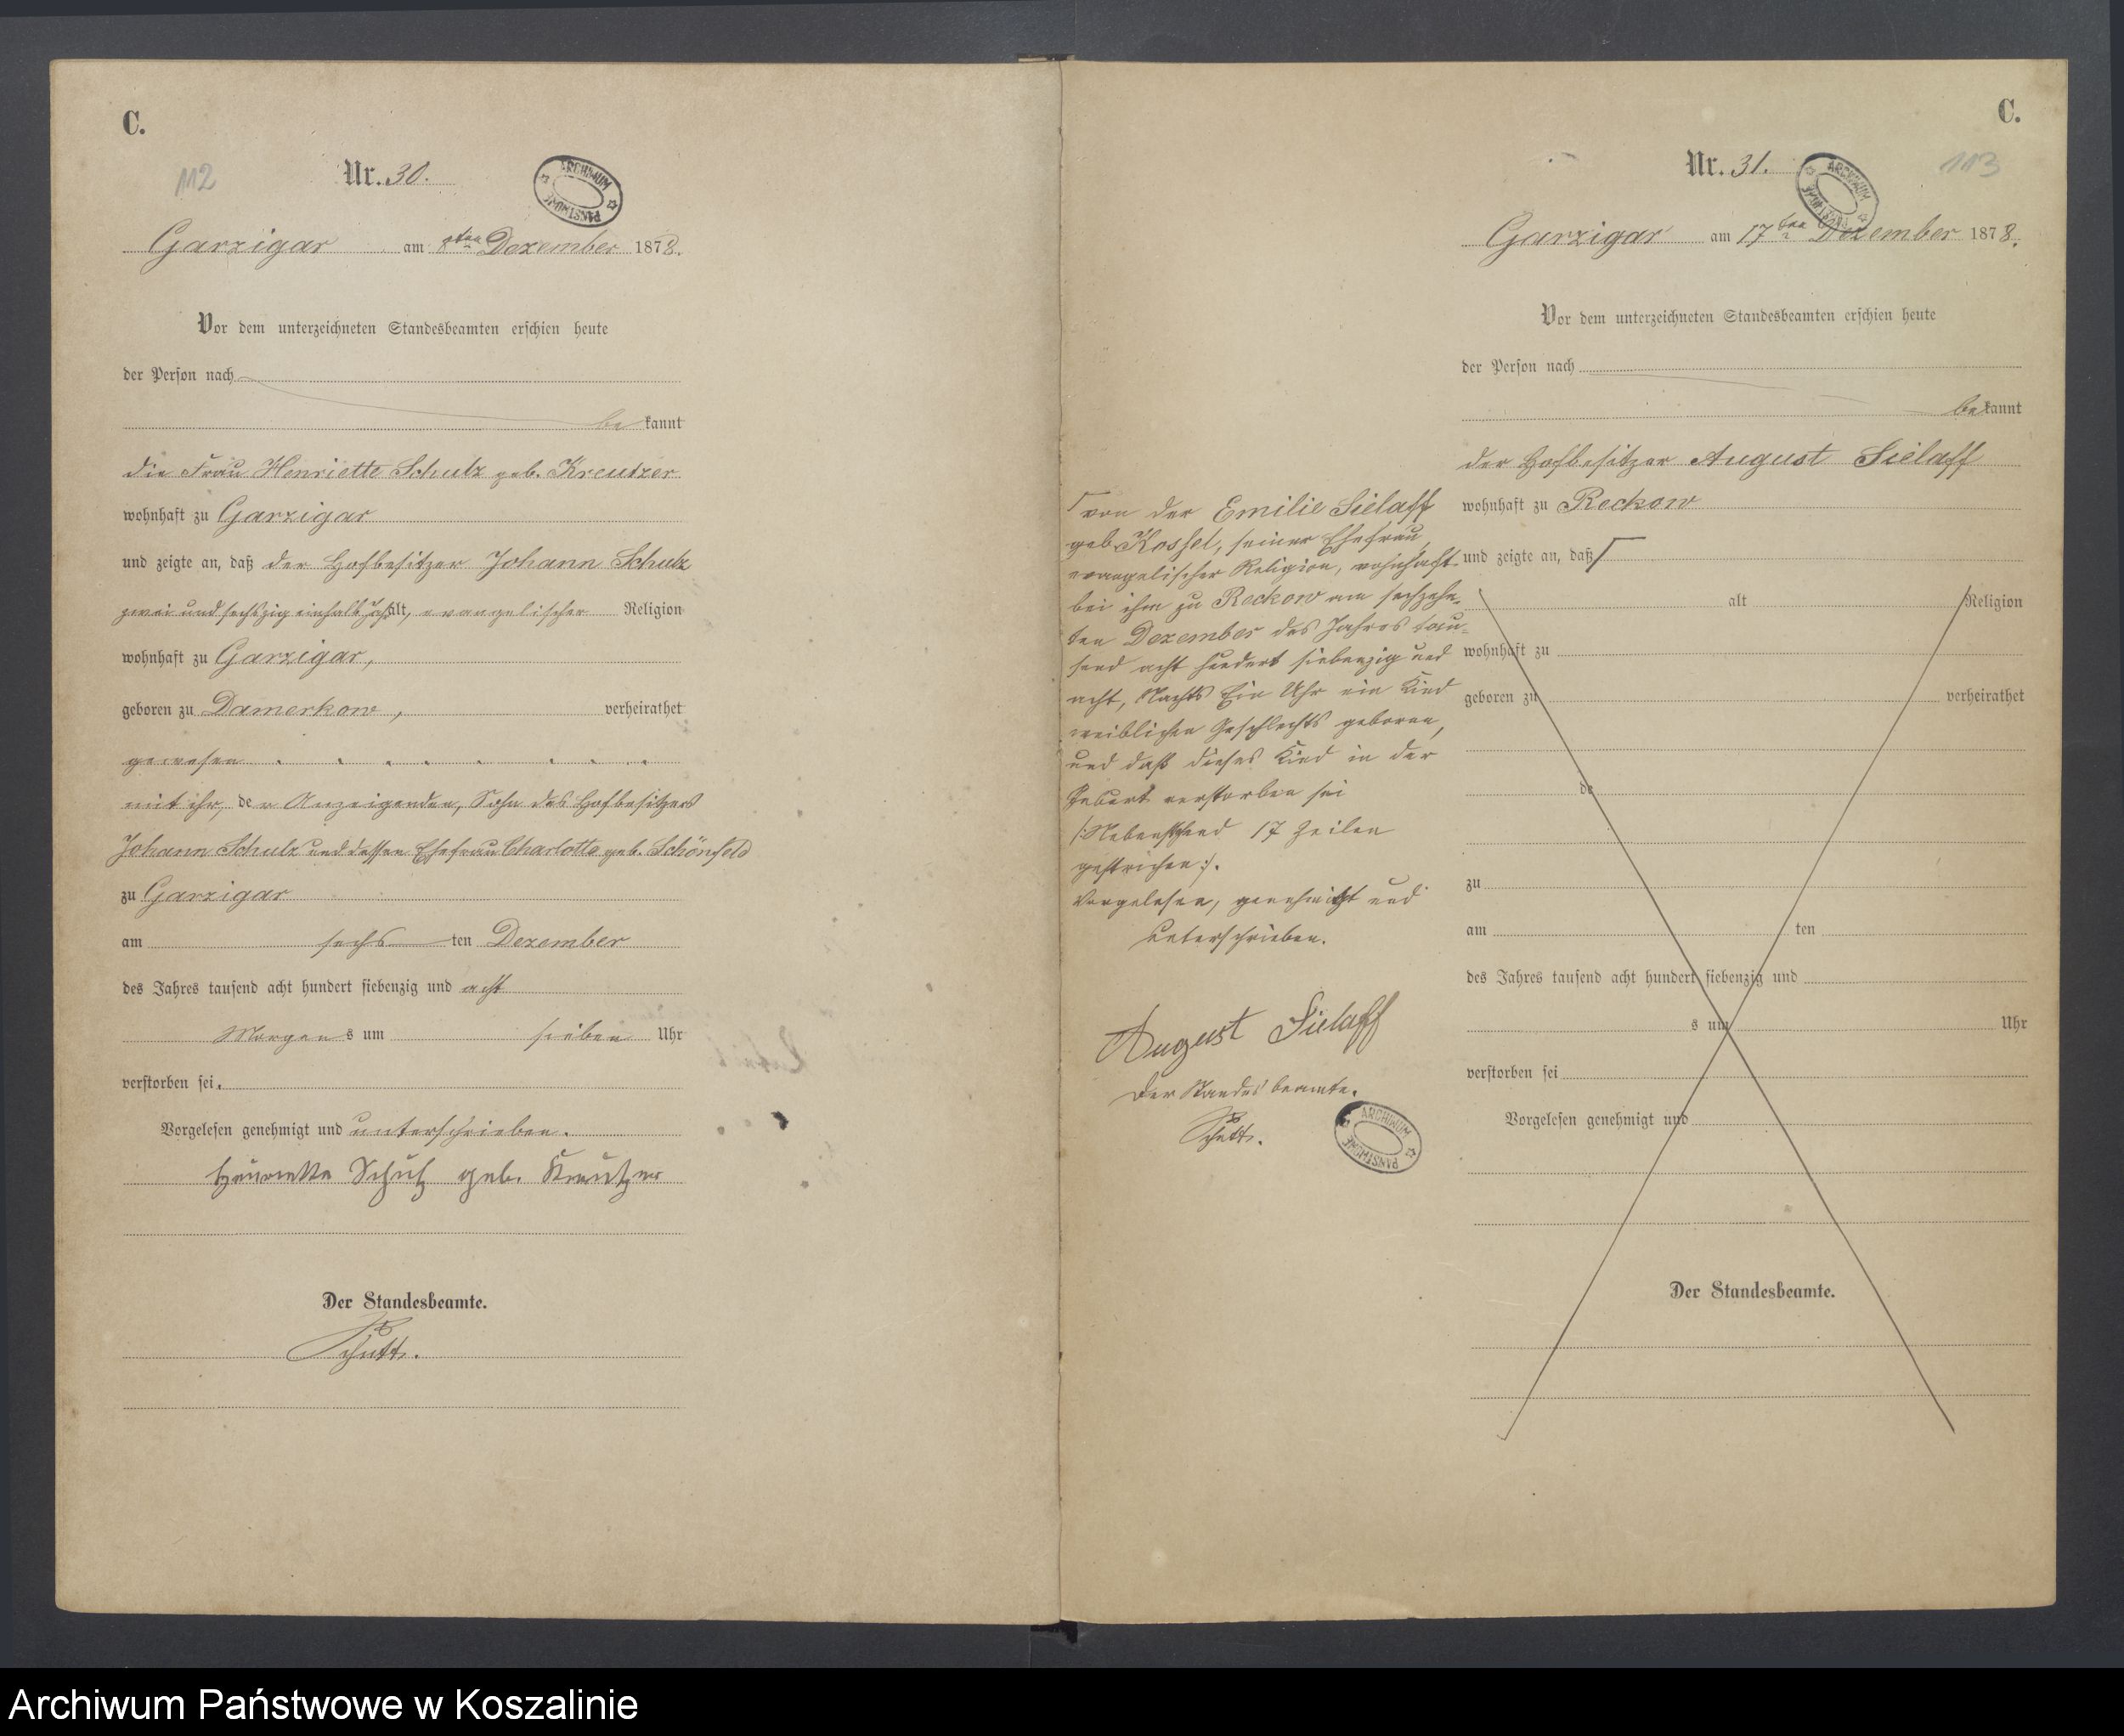 C.
112
Nr. 30.
ARCHIWUM PAŃSTWOWE
Garzigar am 8ten Dezember 1878.
Vor dem unterzeichneten Standesbeamten erschien heute
der Person nach
be kannt
die Frau Henriette Schulz geb. Kreutzer
wohnhaft zu Garzigar
und zeigte an, daß der Hofbesitzer Johann Schulz
zwei und sechszig einhalb Jahr alt, evangelischer Religion
wohnhaft zu Garzigar,
geboren zu Damerkow, verheirathet
gewesen
mit ihr, der Anzeigenden, Sohn des Hofbesitzers
Johann Schulz und dessen Ehefrau Charlotte geb. Schönfeld
zu Garzigar
am sechs ten Dezember
des Jahres tausend acht hundert siebenzig und acht
Morgens um sieben Uhr
verstorben sei.
Vorgelesen genehmigt und unterschrieben.
Henriette Schulz geb. Kreutzer
Der Standesbeamte.
Schütt.
C.
113
Nr. 31.
ARCHIWUM PAŃSTWOWE
Garzigar am 17ten Dezember 1878.
Vor dem unterzeichneten Standesbeamten erschien heute
der Person nach
be kannt
der Hofbesitzer August Sielaff
wohnhaft zu Reckow
und zeigte an, daß
alt Religion
wohnhaft zu
geboren zu verheirathet
de
zu
am ten
des Jahres tausend acht hundert siebenzig und
s um Uhr
verstorben sei
Vorgelesen genehmigt und
Der Standesbeamte.
von der Emilie Sielaff
geb. Kossel, seiner Ehefrau,
evangelischer Religion, wohnhaft
bei ihm zu Reckow am sechzehn-
ten Dezember des Jahres tau-
send acht hundert siebenzig und
acht, Nachts Ein Uhr ein Kind
weiblichen Geschlechts geboren,
und daß dieses Kind in der
Geburt verstorben sei
/: Nebenstehend 17 Zeilen
gestrichen :/.
Vorgelesen, genehmigt und
unterschrieben.
August Sielaff
Der Standesbeamte.
Schütt.
ARCHIWUM PAŃSTWOWE
Archiwum Państwowe w Koszalinie